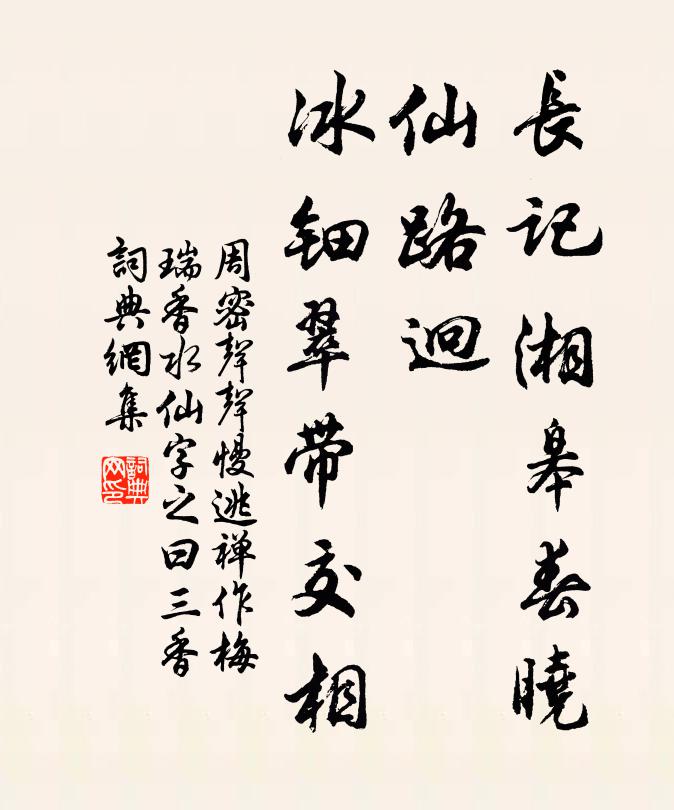 長記湘皋春曉
仙路迥
冰鈿翠带交相
周密聲聲慢逃禅作梅
瑞香水仙字之曰三香
詞典網集
詞典
网印